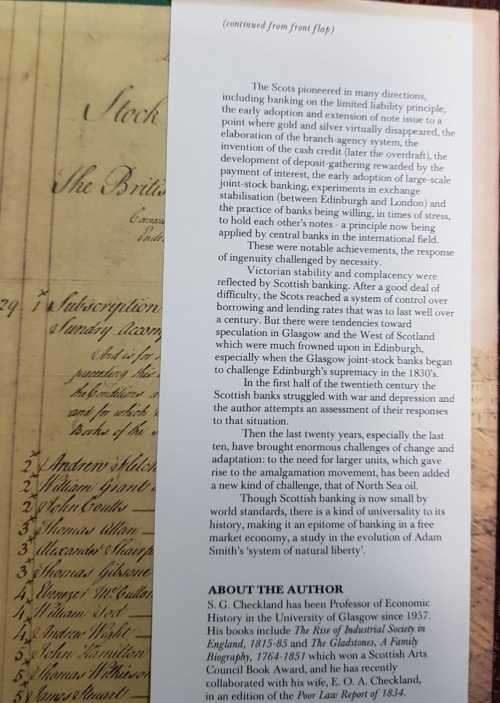 (continued from front flap)
The Scots pioneered in many directions,
including banking on the limited liability principle,
the early adoption and extension of note issue to a
point where gold and silver virtually disappeared, the
elaboration of the branch-agency system, the
invention of the cash credit (later the overdraft), the
development of deposit-gathering rewarded by the
payment of interest, the early adoption of large-scale
joint-stock banking, experiments in exchange
stabilisation (between Edinburgh and London) and
the practice of banks being willing, in times of stress,
to hold each other's notes - a principle now being
applied by central banks in the international field.
These were notable achievements, the response
of ingenuity challenged by necessity.
Victorian stability and complacency were
reflected by Scottish banking. After a good deal of
difficulty, the Scots reached a system of control over
borrowing and lending rates that was to last well over
a century. But there were tendencies toward
speculation in Glasgow and the West of Scotland
which were much frowned upon in Edinburgh,
especially when the Glasgow joint-stock banks began
to challenge Edinburgh's supremacy in the 1830's.
In the first half of the twentieth century the
Scottish banks struggled with war and depression and
the author attempts an assessment of their responses
to that situation.
Then the last twenty years, especially the last
ten, have brought enormous challenges of change and
adaptation: to the need for larger units, which gave
rise to the amalgamation movement, has been added
a new kind of challenge, that of North Sea oil.
Though Scottish banking is now small by
world standards, there is a kind of universality to its
history, making it an epitome of banking in a free
market economy, a study in the evolution of Adam
Smith's 'system of natural liberty'.
ABOUT THE AUTHOR
S. G. Checkland has been Professor of Economic
History in the University of Glasgow since 1957.
His books include The Rise of Industrial Society in
England, 1815-85 and The Gladstones, A Family
Biography, 1764-1851 which won a Scottish Arts
Council Book Award, and he has recently
collaborated with his wife, E. O. A. Checkland,
in an edition of the Poor Law Report of 1834.
Stock
The Britis
29 1 Subscription
Sundry Accom
And is for
preceding this
the Conditions
and for which
Books of the
2 Andrew
2 William Grant
2 John Coutts
3 Thomas Allan
3 Alexander Sharp
3 Thomas Gibsone
4 Ebenezer
4 William
4 Andrew Wight
5 John Hamilton
5 Thomas Wilkinson
5 James Stewart